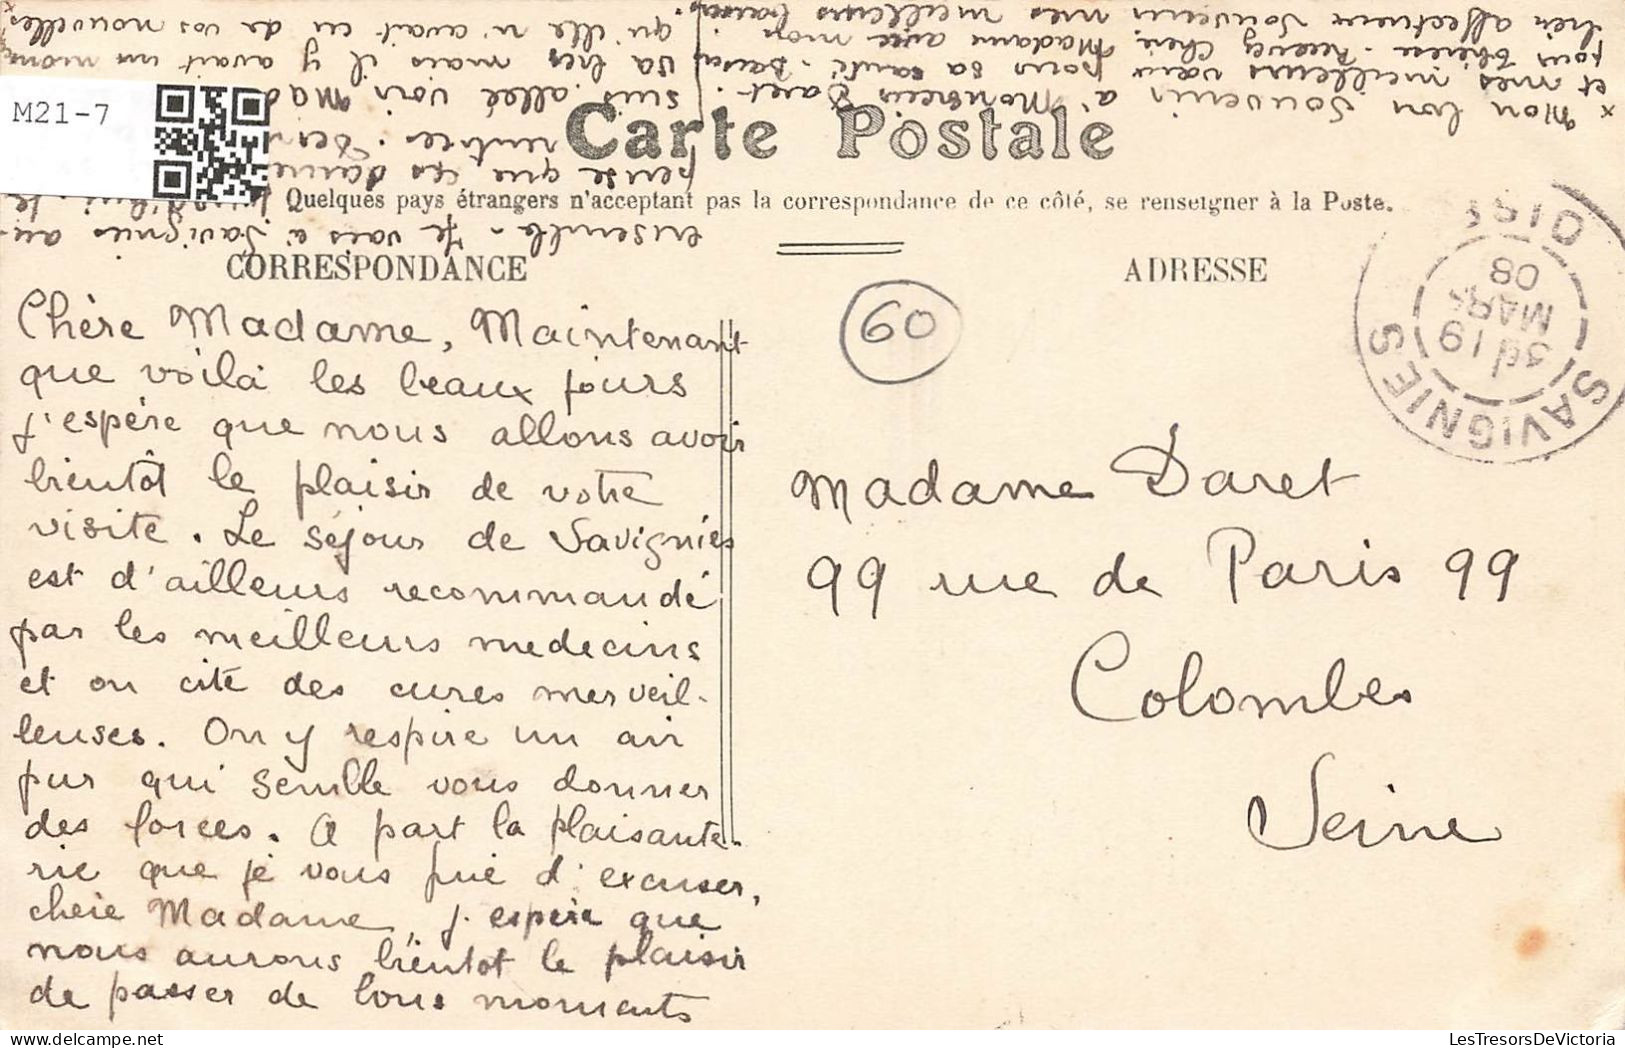 M21-7
Carte Postale
Quelques pays étrangers n'acceptant pas la correspondance de ce côté, se renseigner à la Poste.
CORRESPONDANCE
ADRESSE
Chère Madame, Maintenant
que voilà les beaux jours
j'espère que nous allons avoir
bientôt le plaisir de votre
visite. Le séjour de Savignies
est d'ailleurs recommandé
par les meilleurs medecins
et on cite des cures merveil-
leuses. On y respire un air
pur qui semble vous donner
des forces. A part la plaisante-
rie que je vous prie d'excuser,
chère Madame, j'espère que
nous aurons bientot le plaisir
de passer de bons moments
ensemble - Je vais à Savignies au-
jourd'hui. Je
pense que ces dames
rentrées.
suis allée voir Mad
va très mais il y avait un mome
qu'elle n'avait eu de vos nouvelles
x Mon bon souvenir à Monsieur Daret.
et mes meilleurs vœux pour sa santé.
pour Thérèse. Recevez Chère Madame avec mon
très affectueux souvenir mes meilleurs baisers.
60
SAVIGNIES
OISE
3e 19
MARS
08
Madame Daret
99 rue de Paris 99
Colombes
Seine
LesTresorsDeVictoria.com